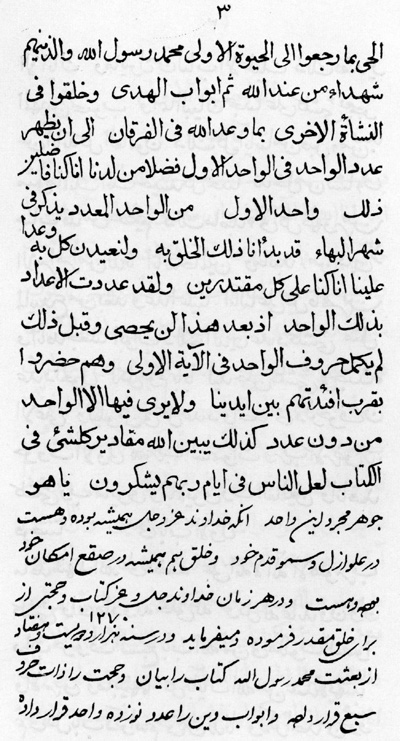 ٣
الحى بما رجعوا الى الحيوة الاولى محمد رسول الله والذينهم
شهداء من عند الله ثم ابواب الهدى وخلقوا فى
النشأة الاخرى بما وعد الله فى الفرقان الى ان يظهر
عدد الواحد فى الواحد الاول فضلا من لدنا انا كنا فاضلين
ذلك واحد الاول من الواحد المعدد يذكر فى
شهر البهاء قد بدأنا ذلك الخلق به ولنعيدن كل به وعدا
علينا انا كنا على كل مقتدرين ولقد عددت الاعداد
بذلك الواحد اذ بعد هذا لن يحصى وقبل ذلك
لم يكمل حروف الواحد فى الآية الاولى وهم حضروا
بقرب افئدتهم بين ايدينا ولا يرى فيها الا الواحد
من دون عدد كذلك يبين الله مقادير كلشئ فى
الكتاب لعل الناس فى ايام ربهم يشكرون ياهو
جوهر مجرد اين واحد آنكه خداوند عز وجل هميشه بوده وهست
در علو ازل وسمو قدم خود وخلق هم هميشه در صقع امكان خود
بوده وهست ودر هر زمان خداوند جل وعز كتاب وحجتى از
براى خلق مقدر فرموده وميفرمايد ودر سنه هزار ودويست وهفتاد ١٢٧٠
از بعثت محمد رسول الله كتاب را بيان وحجت را ذات حروف
سبع قرار داده وابواب دين را عدد نوزده واحد قرار داده